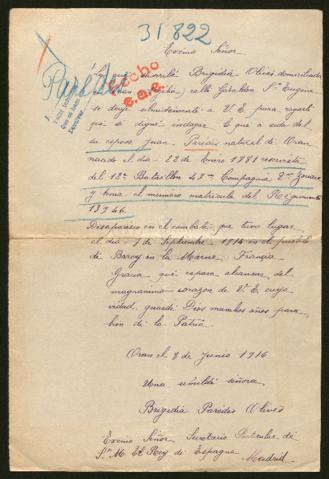 31822
Exmo Señor
Paredes
Hecho
La que suscribe Brigedia Olives domiciliada
calle Gambetta Sn Eugene
se dirige humildemente a V. E. para rogarle
que se digne indagar lo que a sido del
su esposo Juan Paredes natural de Oran
nacido el dia 22 de Enero 1881 reservista
del 12º Batallon 47º Compagnia 2º Zouave
y toma el numero matricula del Regimiento
13946.
Desaparecio en el combate que tuvo lugar
el dia 7 de Septiembre 1914 en el pueblo
de Barcy en la Marne, Francia
Gracia que espera alcanzar del
magnanimo corazon de V. E. cuya
vida guarde Dios muchos años para
bien de la Patria.
Oran el 8 de junio 1916
Una señora
Brigedia Paredes Olives
Exmo Señor Secretario Particular de
S. M. El Rey de Espagne
Madrid